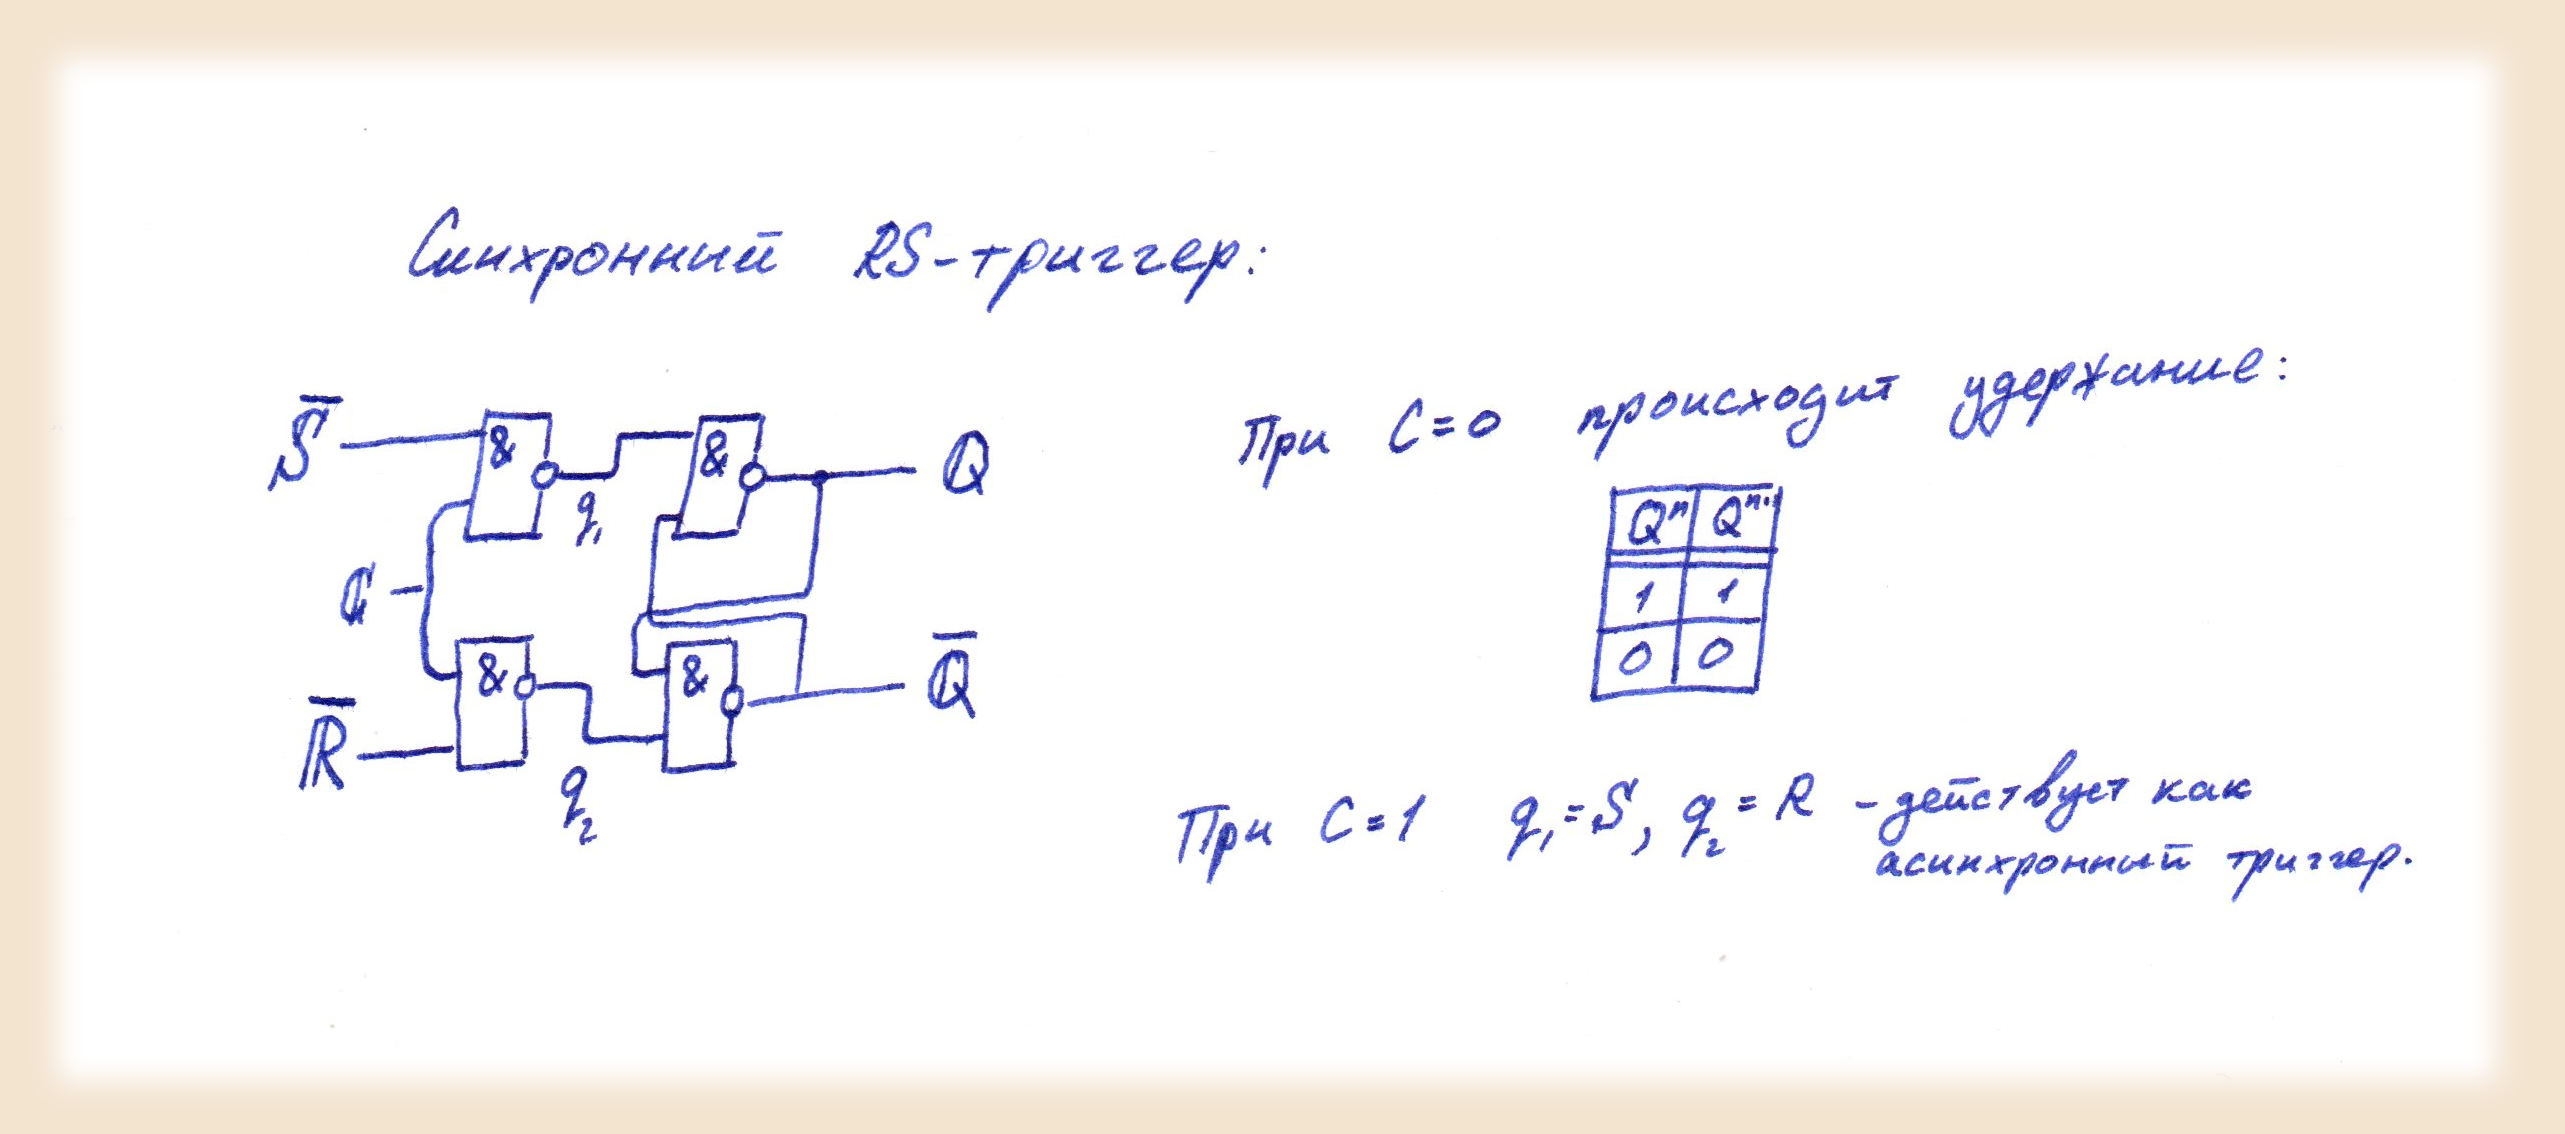 Синхронный RS-триггер:
S̅
&
&
Q
q₁
C
&
&
Q̅
R̅
q₂
При C=0 происходит удержание:
Qⁿ Qⁿ⁺¹
1 1
0 0
При C=1 q₁=S, q₂=R - действует как
асинхронный триггер.